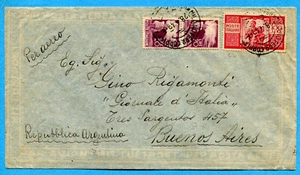 Per aereo
Eg. Sig.
Gino Rigamonti
"Giornale d'Italia"
Tres Sargentos 457
Buenos Aires
Repubblica Argentina